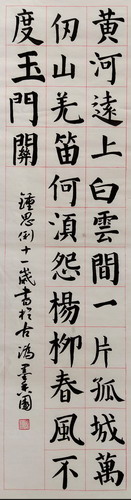 黃河遠上白雲間一片孤城萬
仞山羌笛何湏怨楊柳春風不
度玉門關
鍾思俐十一歲書於古